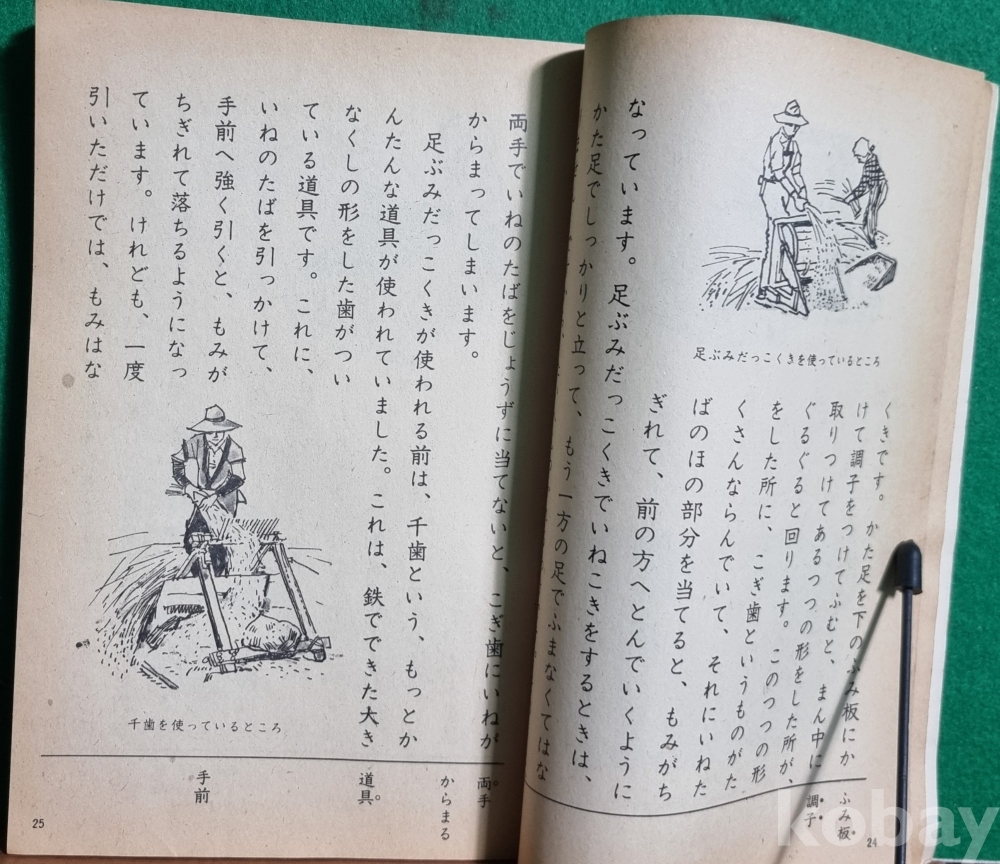 足ぶみだっこくきを使っているところ
くきです。かた足を下のふみ板にか
けて調子をつけてふむと、まん中に
取りつけてあるつつの形をした所が、
ぐるぐると回ります。このつつの形
をした所に、こぎ歯というものがた
くさんならんでいて、それにいねた
ばのほの部分を当てると、もみがち
ぎれて、前の方へとんでいくように
なっています。足ぶみだっこくきでいねこきをするときは、
かた足でしっかりと立って、もう一方の足でふまなくてはな
ふみ板
調子
24
両手でいねのたばをじょうずに当てないと、こぎ歯にいねが
からまってしまいます。
足ぶみだっこくきが使われる前は、千歯という、もっとか
んたんな道具が使われていました。これは、鉄でできた大き
なくしの形をした歯がつい
ている道具です。これに、
いねのたばを引っかけて、
手前へ強く引くと、もみが
ちぎれて落ちるようになっ
ています。けれども、一度
引いただけでは、もみはな
千歯を使っているところ
両手
からまる
道具
手前
25
kobay